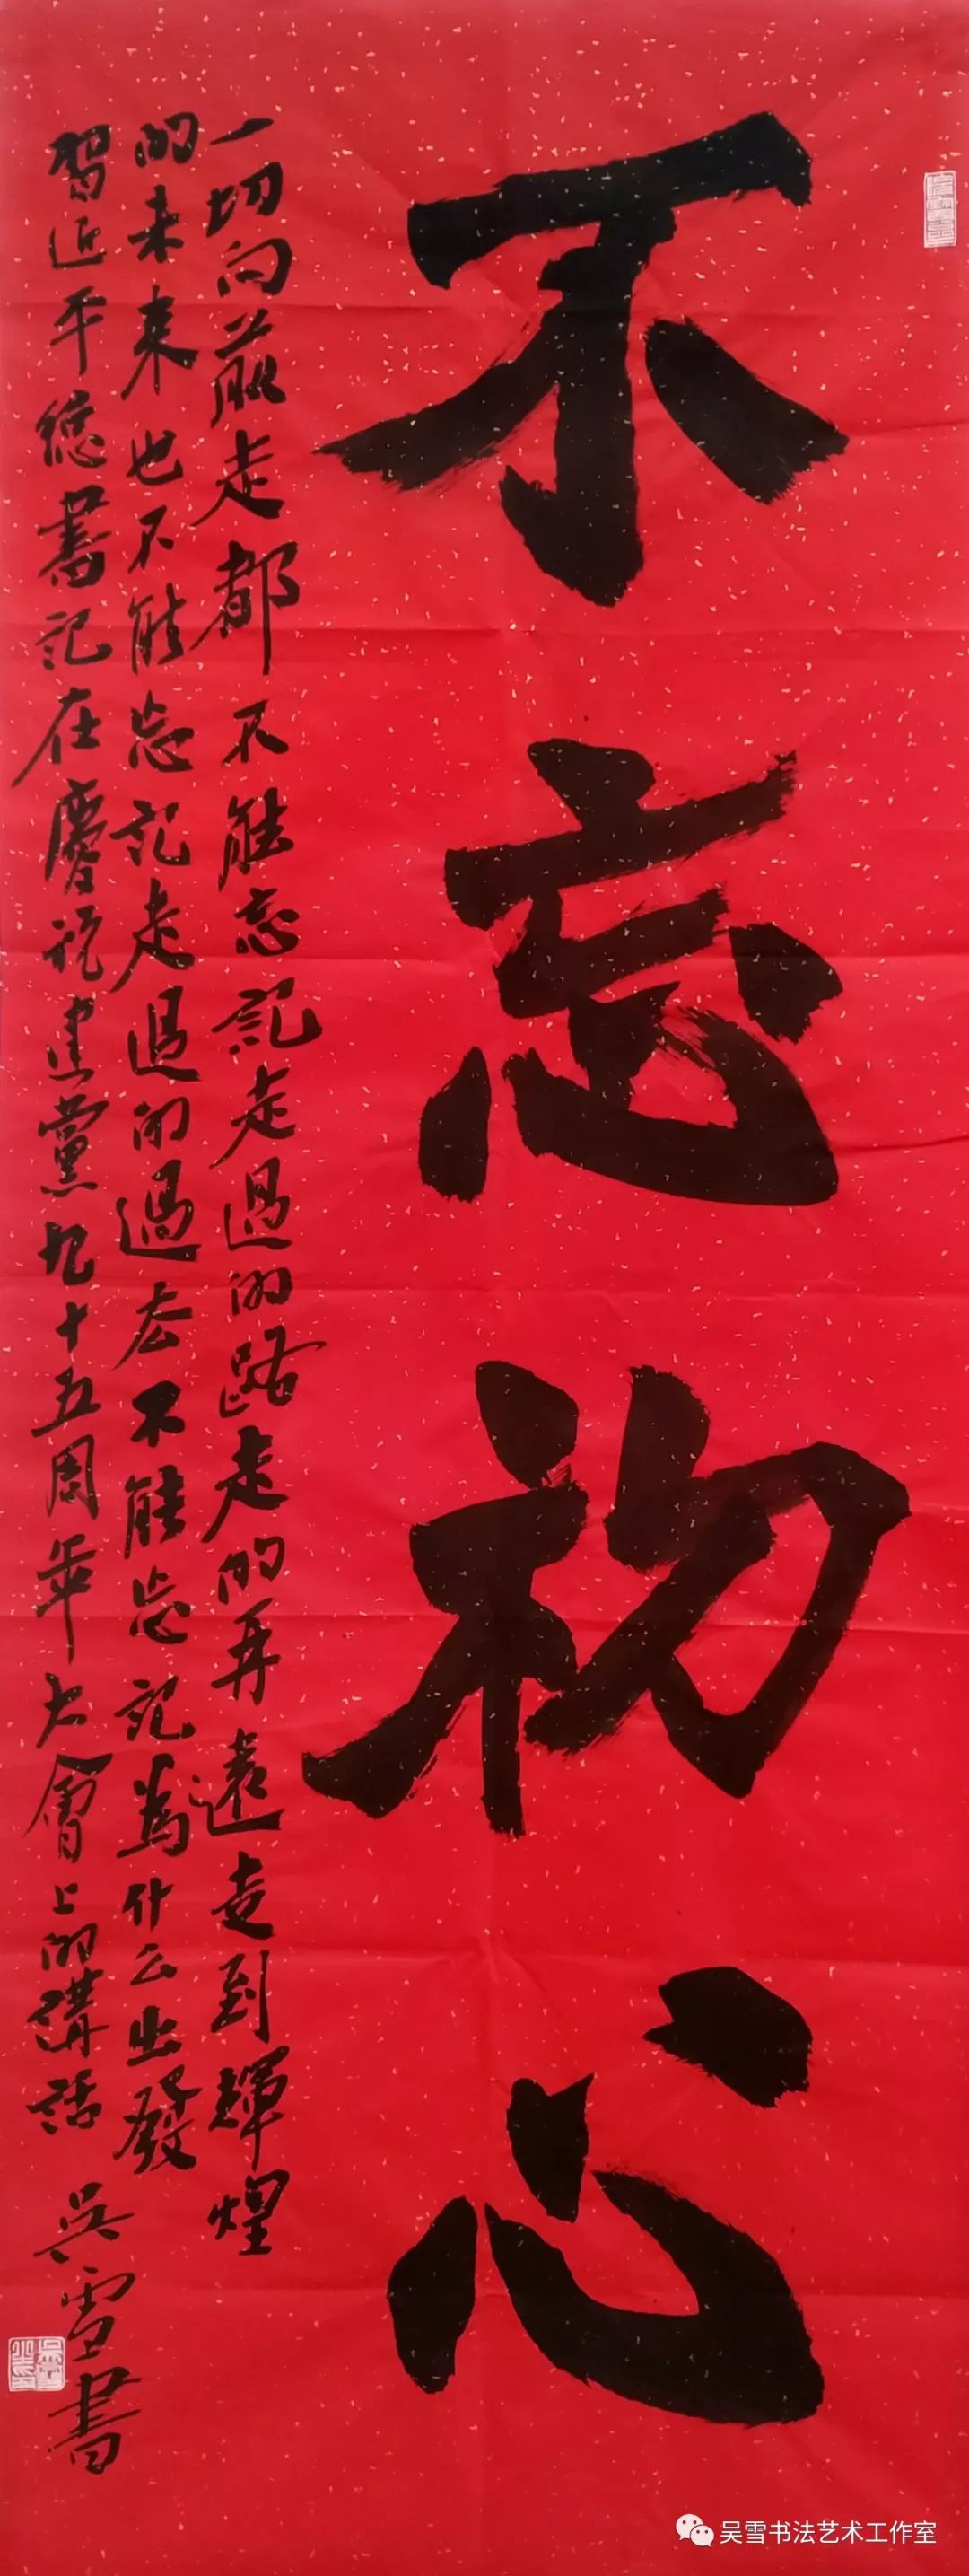 不忘初心
一切向前走都不能忘記走過的路走的再遠走到輝煌
的未来也不能忘記走過的過去不能忘記為什么出發
習近平總書記在慶祝建黨九十五周年大會上的講話
吳雪書
吴雪书法艺术工作室